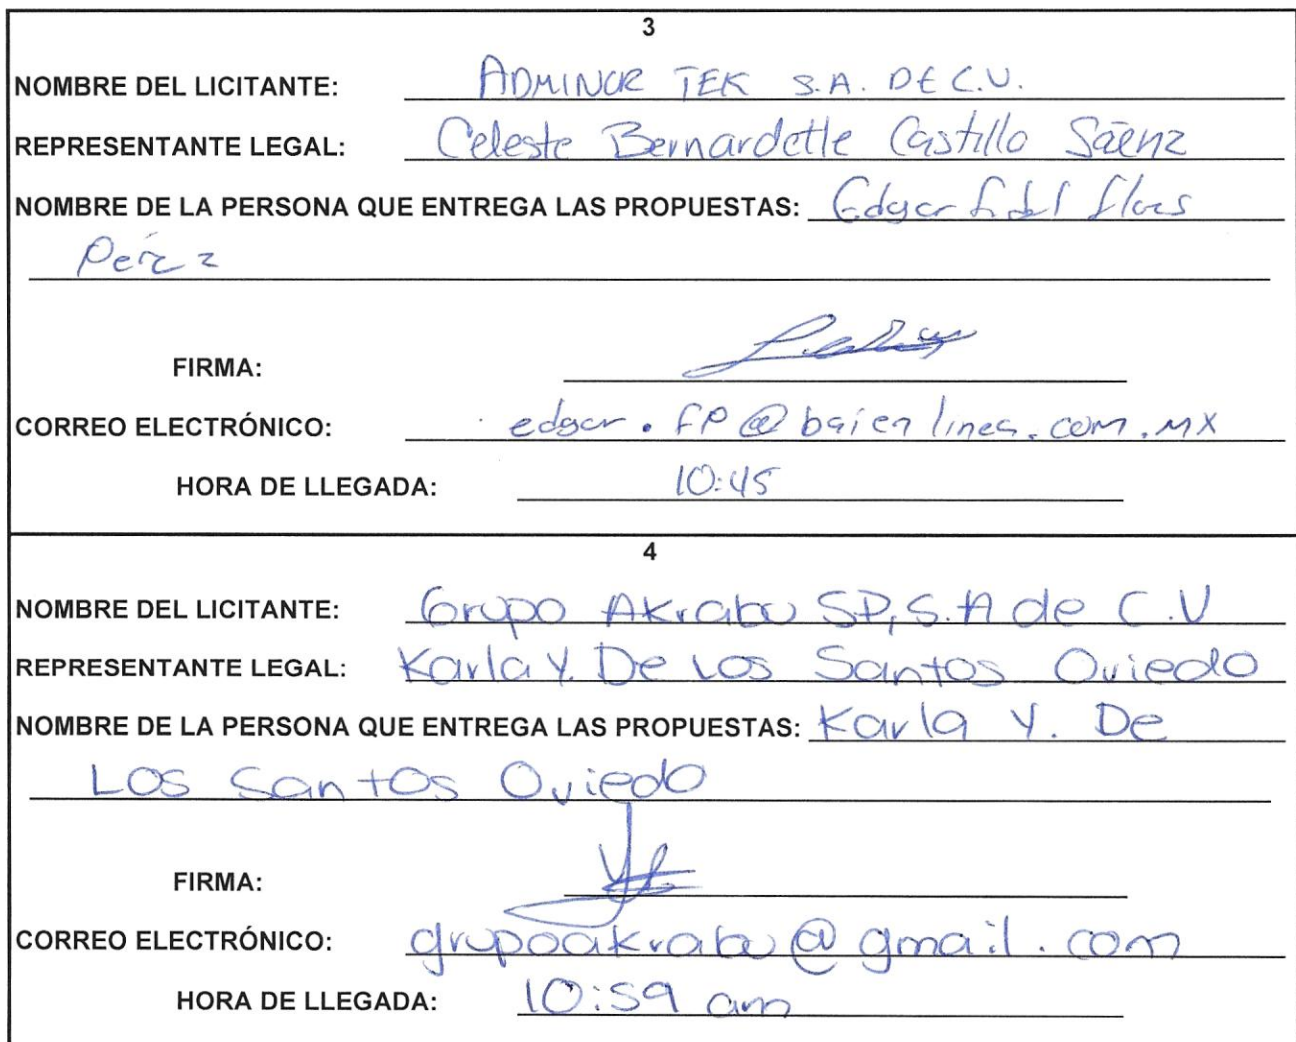 3
NOMBRE DEL LICITANTE: ADMINOR TEK S.A. DE C.V.
REPRESENTANTE LEGAL: Celeste Bernardette Castillo Sáenz
NOMBRE DE LA PERSONA QUE ENTREGA LAS PROPUESTAS: Edgar Fidel Flores
Pérez
FIRMA:
CORREO ELECTRÓNICO: edgar.fp@baienlinea.com.mx
HORA DE LLEGADA: 10:45
4
NOMBRE DEL LICITANTE: Grupo Akrabu SP, S.A de C.V
REPRESENTANTE LEGAL: Karla Y. De Los Santos Oviedo
NOMBRE DE LA PERSONA QUE ENTREGA LAS PROPUESTAS: Karla Y. De
Los Santos Oviedo
FIRMA:
CORREO ELECTRÓNICO: grupoakrabu@gmail.com
HORA DE LLEGADA: 10:59 am